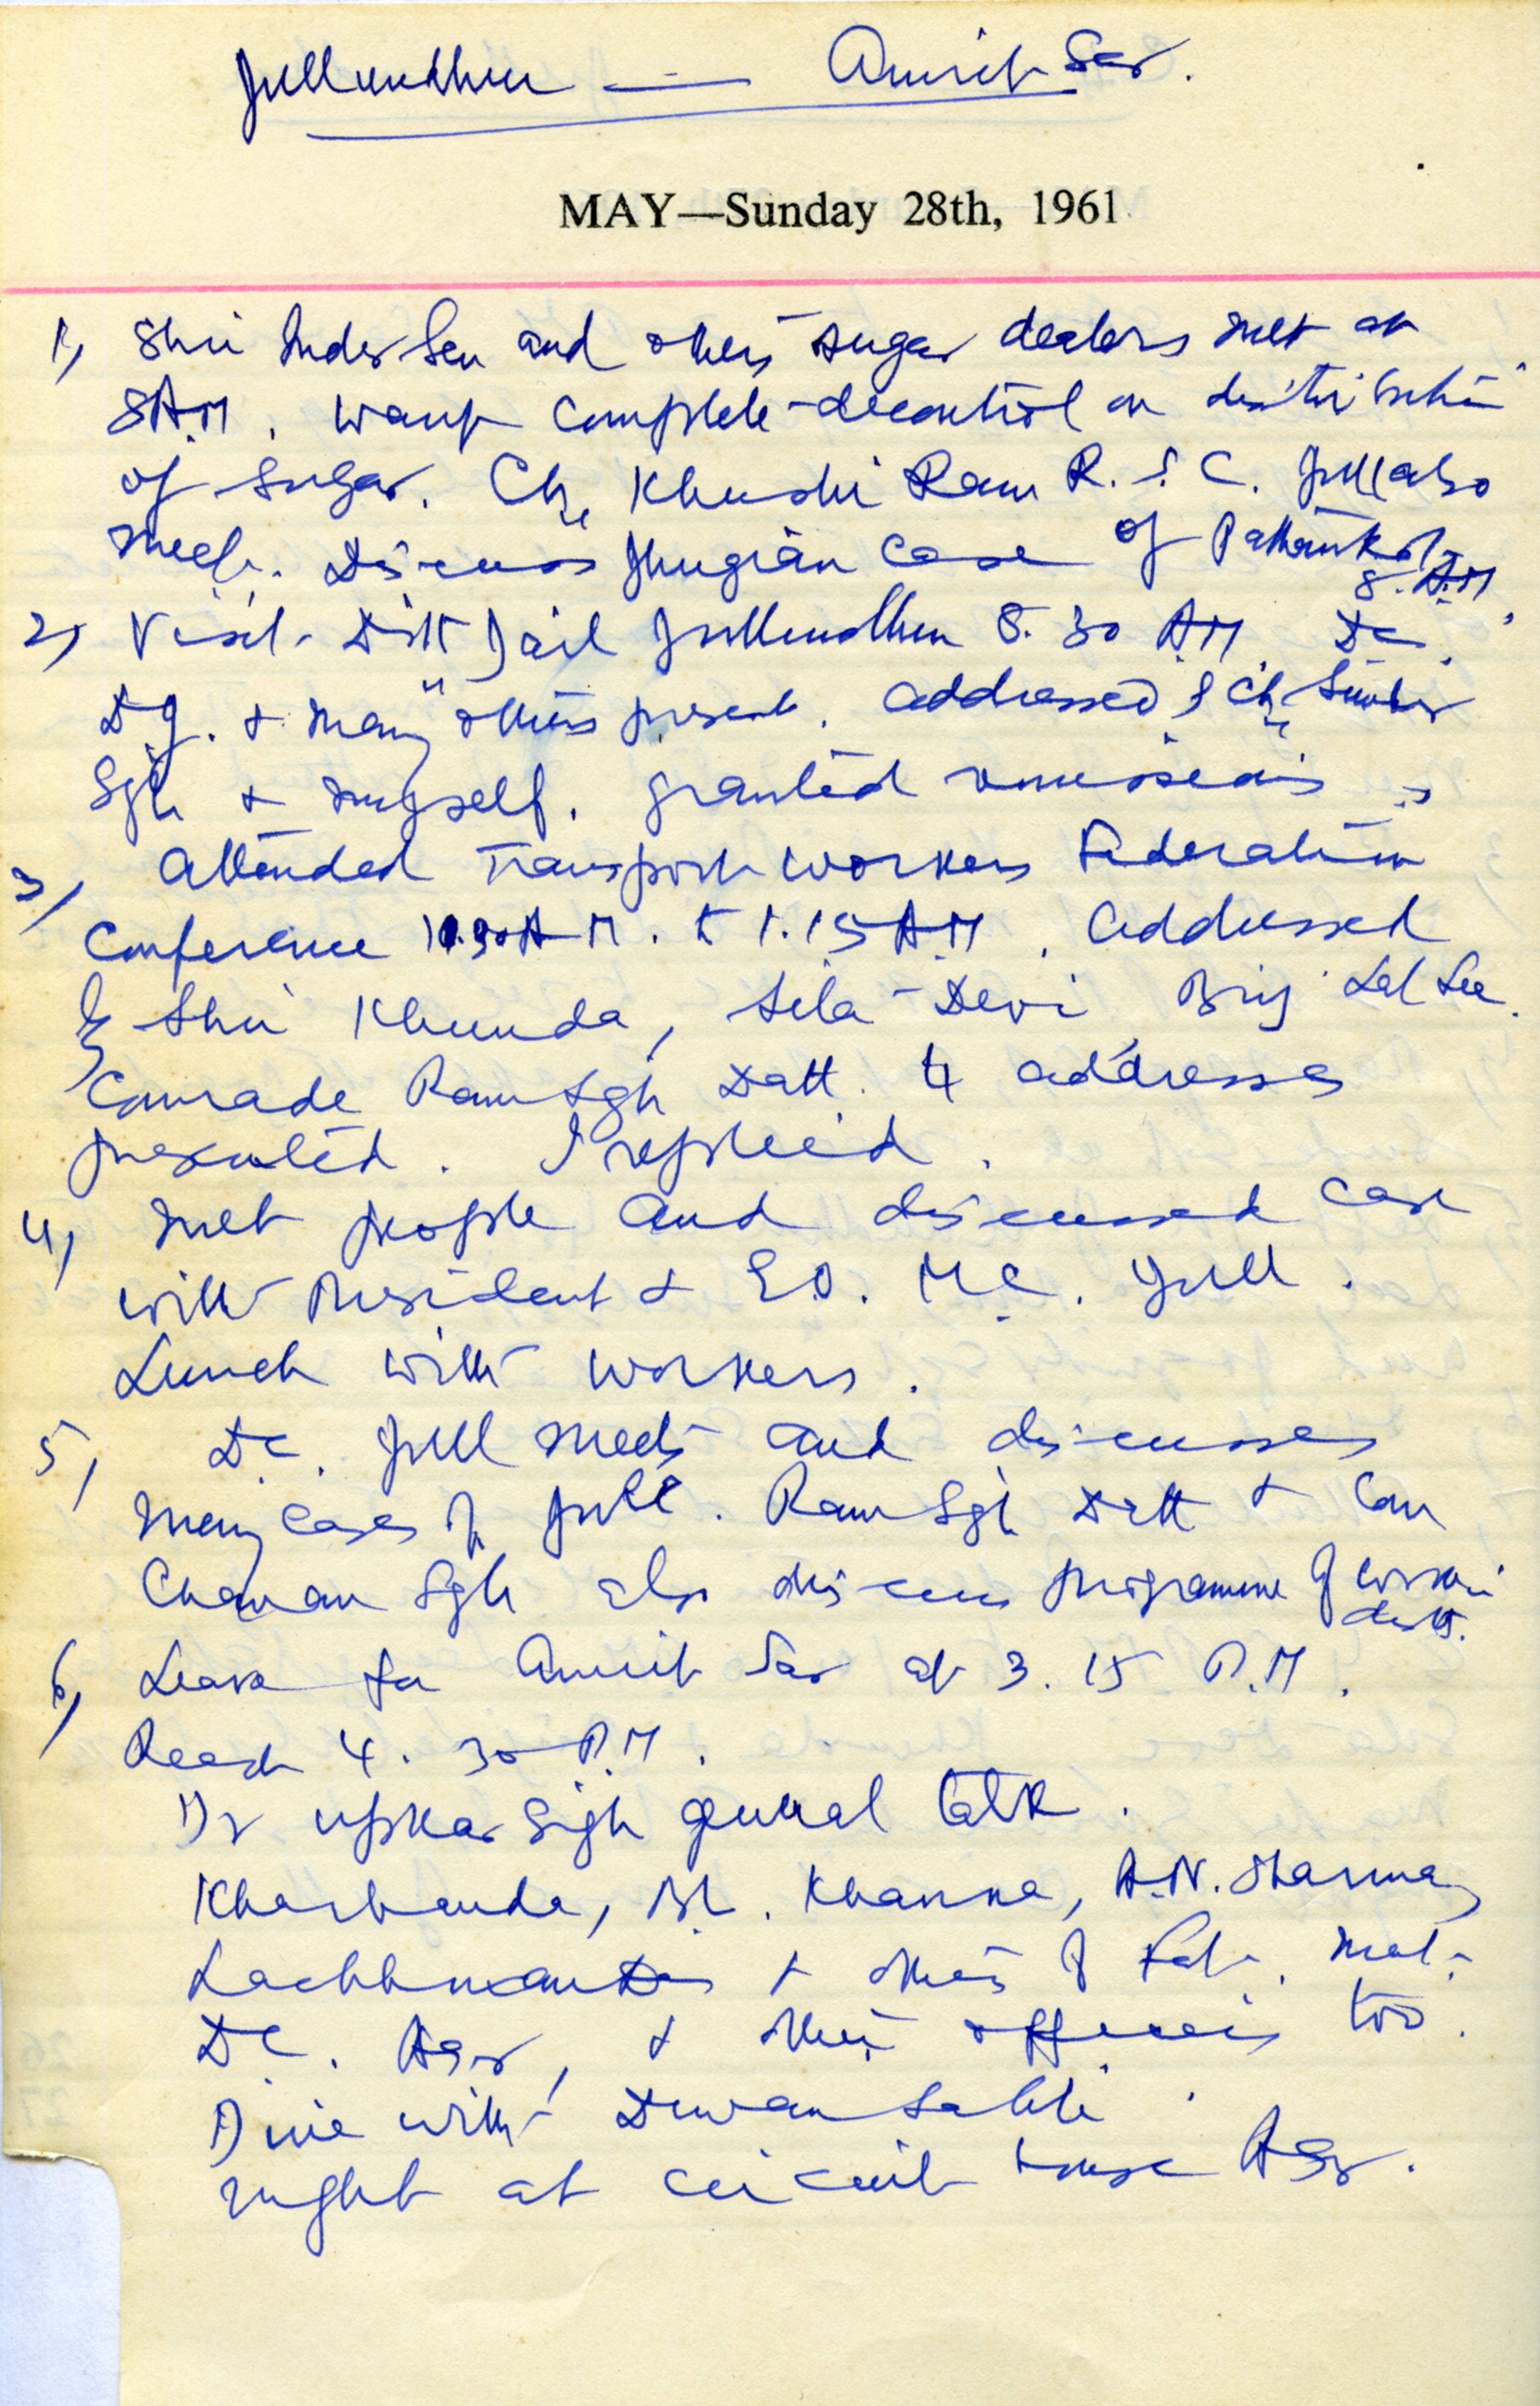 Jullundhur — Amrit Sar.
MAY—Sunday 28th, 1961
1) Shri Inder Sen and others sugar dealers met at
8 A.M. want complete decontrol on distribution
of sugar. Ch. Khushi Ram R. S. C. Jull also
meet. Discuss Jhugian case of Pathankot
8. A.M.
2) Visit Distt Jail Jullundhur 8. 30 AM. DC.
D.g. & many others present. addressed Ch. Sunder
Sgh & myself. granted remissions
3) Attended Transport workers Federation
Conference A.M. to 1.15 A.M. addressed
by Shri Khunda, Sila Devi Brij Lal
Comrade Ram Sgh Datt. 4 addresses
presented. I replied.
4) met people and discussed case
with President & E.O. M.C. Jull.
Lunch with workers.
5) D.C. Jull meets and discusses
many cases of Jull. Ram Sgh Datt & Com
Chanan Sgh also discuss programme of
distt.
6) Leave for Amrit Sar at 3. 15 P.M.
Reach 4. 30 P.M.
Dr Upkar Sigh general talk.
Kharbanda, Khanna, A.N. Sharma,
Lachhman Das & others of met.
DC. Asr, & other officers too.
Dine with Dewan Sahib.
night at circuit house Asr.